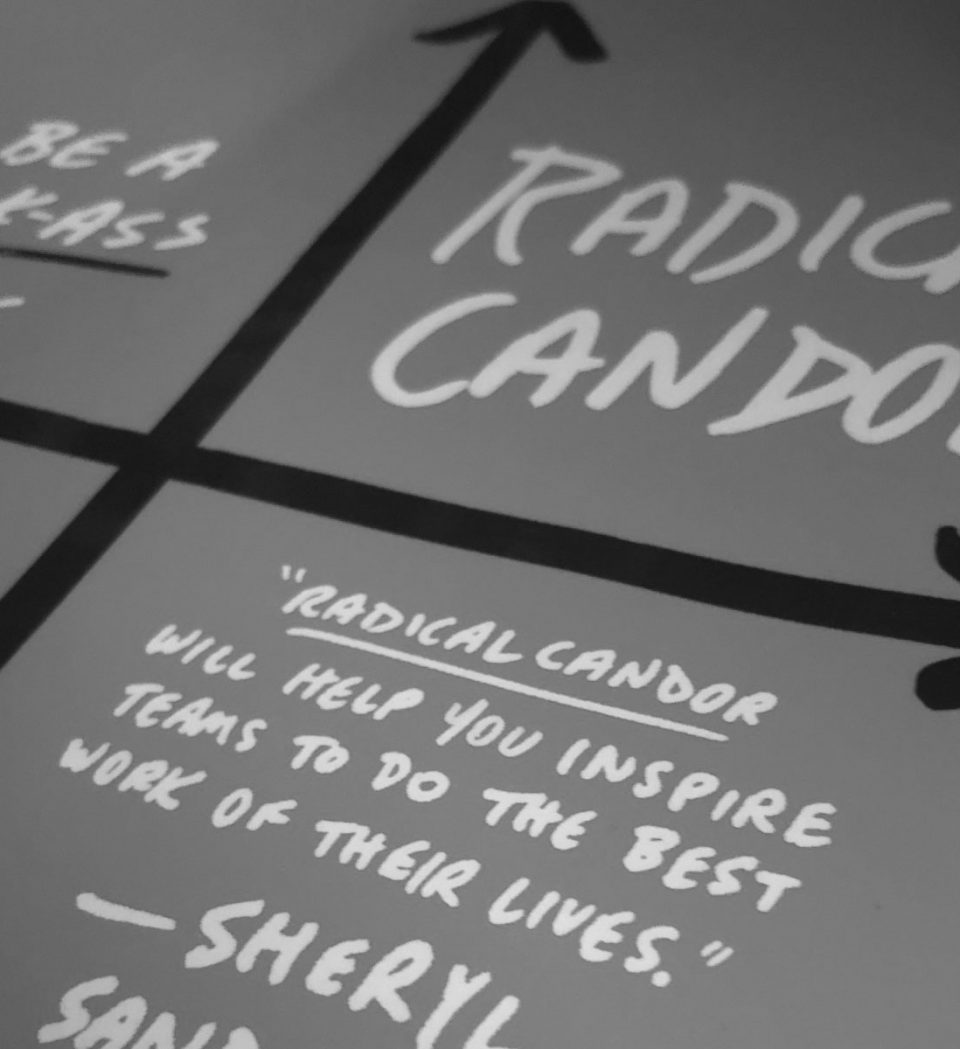 BE A
K-ASS
RADICA
CANDO
"RADICAL CANDOR
WILL HELP YOU INSPIRE
TEAMS TO DO THE BEST
WORK OF THEIR LIVES."
— SHERYL
SAND